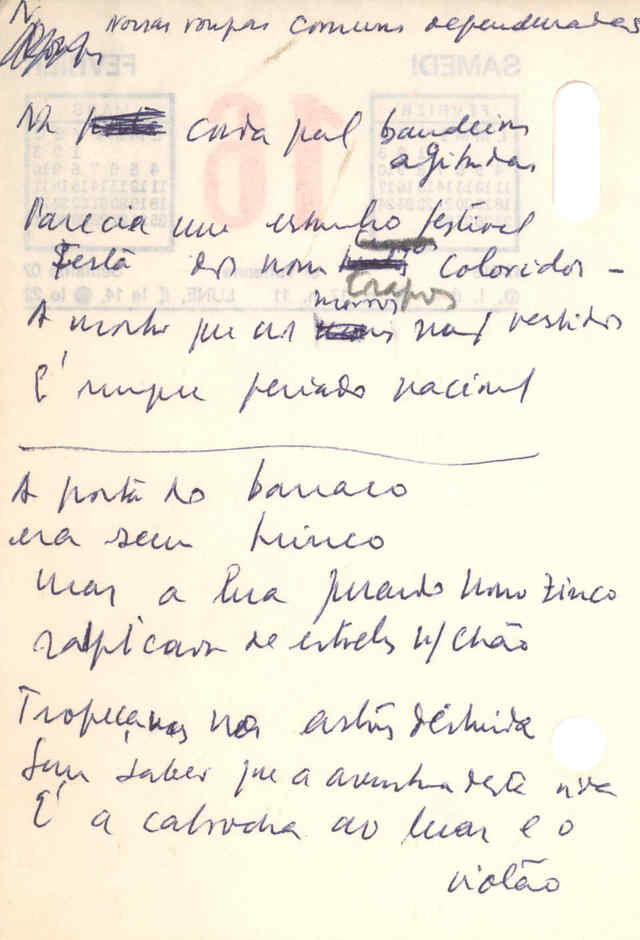 Nossas roupas comuns dependuradas
Na corda qual bandeiras
agitadas
Parecia um estranho festival
Festa dos nossos trapos coloridos -
A mostrar que nos morros mal vestidos
É sempre feriado nacional
A porta do barraco
era sem trinco
mas a lua furando nosso zinco
salpicava de estrelas n/ chão
Tropeçavas nos astros distraida
Sem saber que a ventura desta vida
É a cabrocha ao luar e o
violão